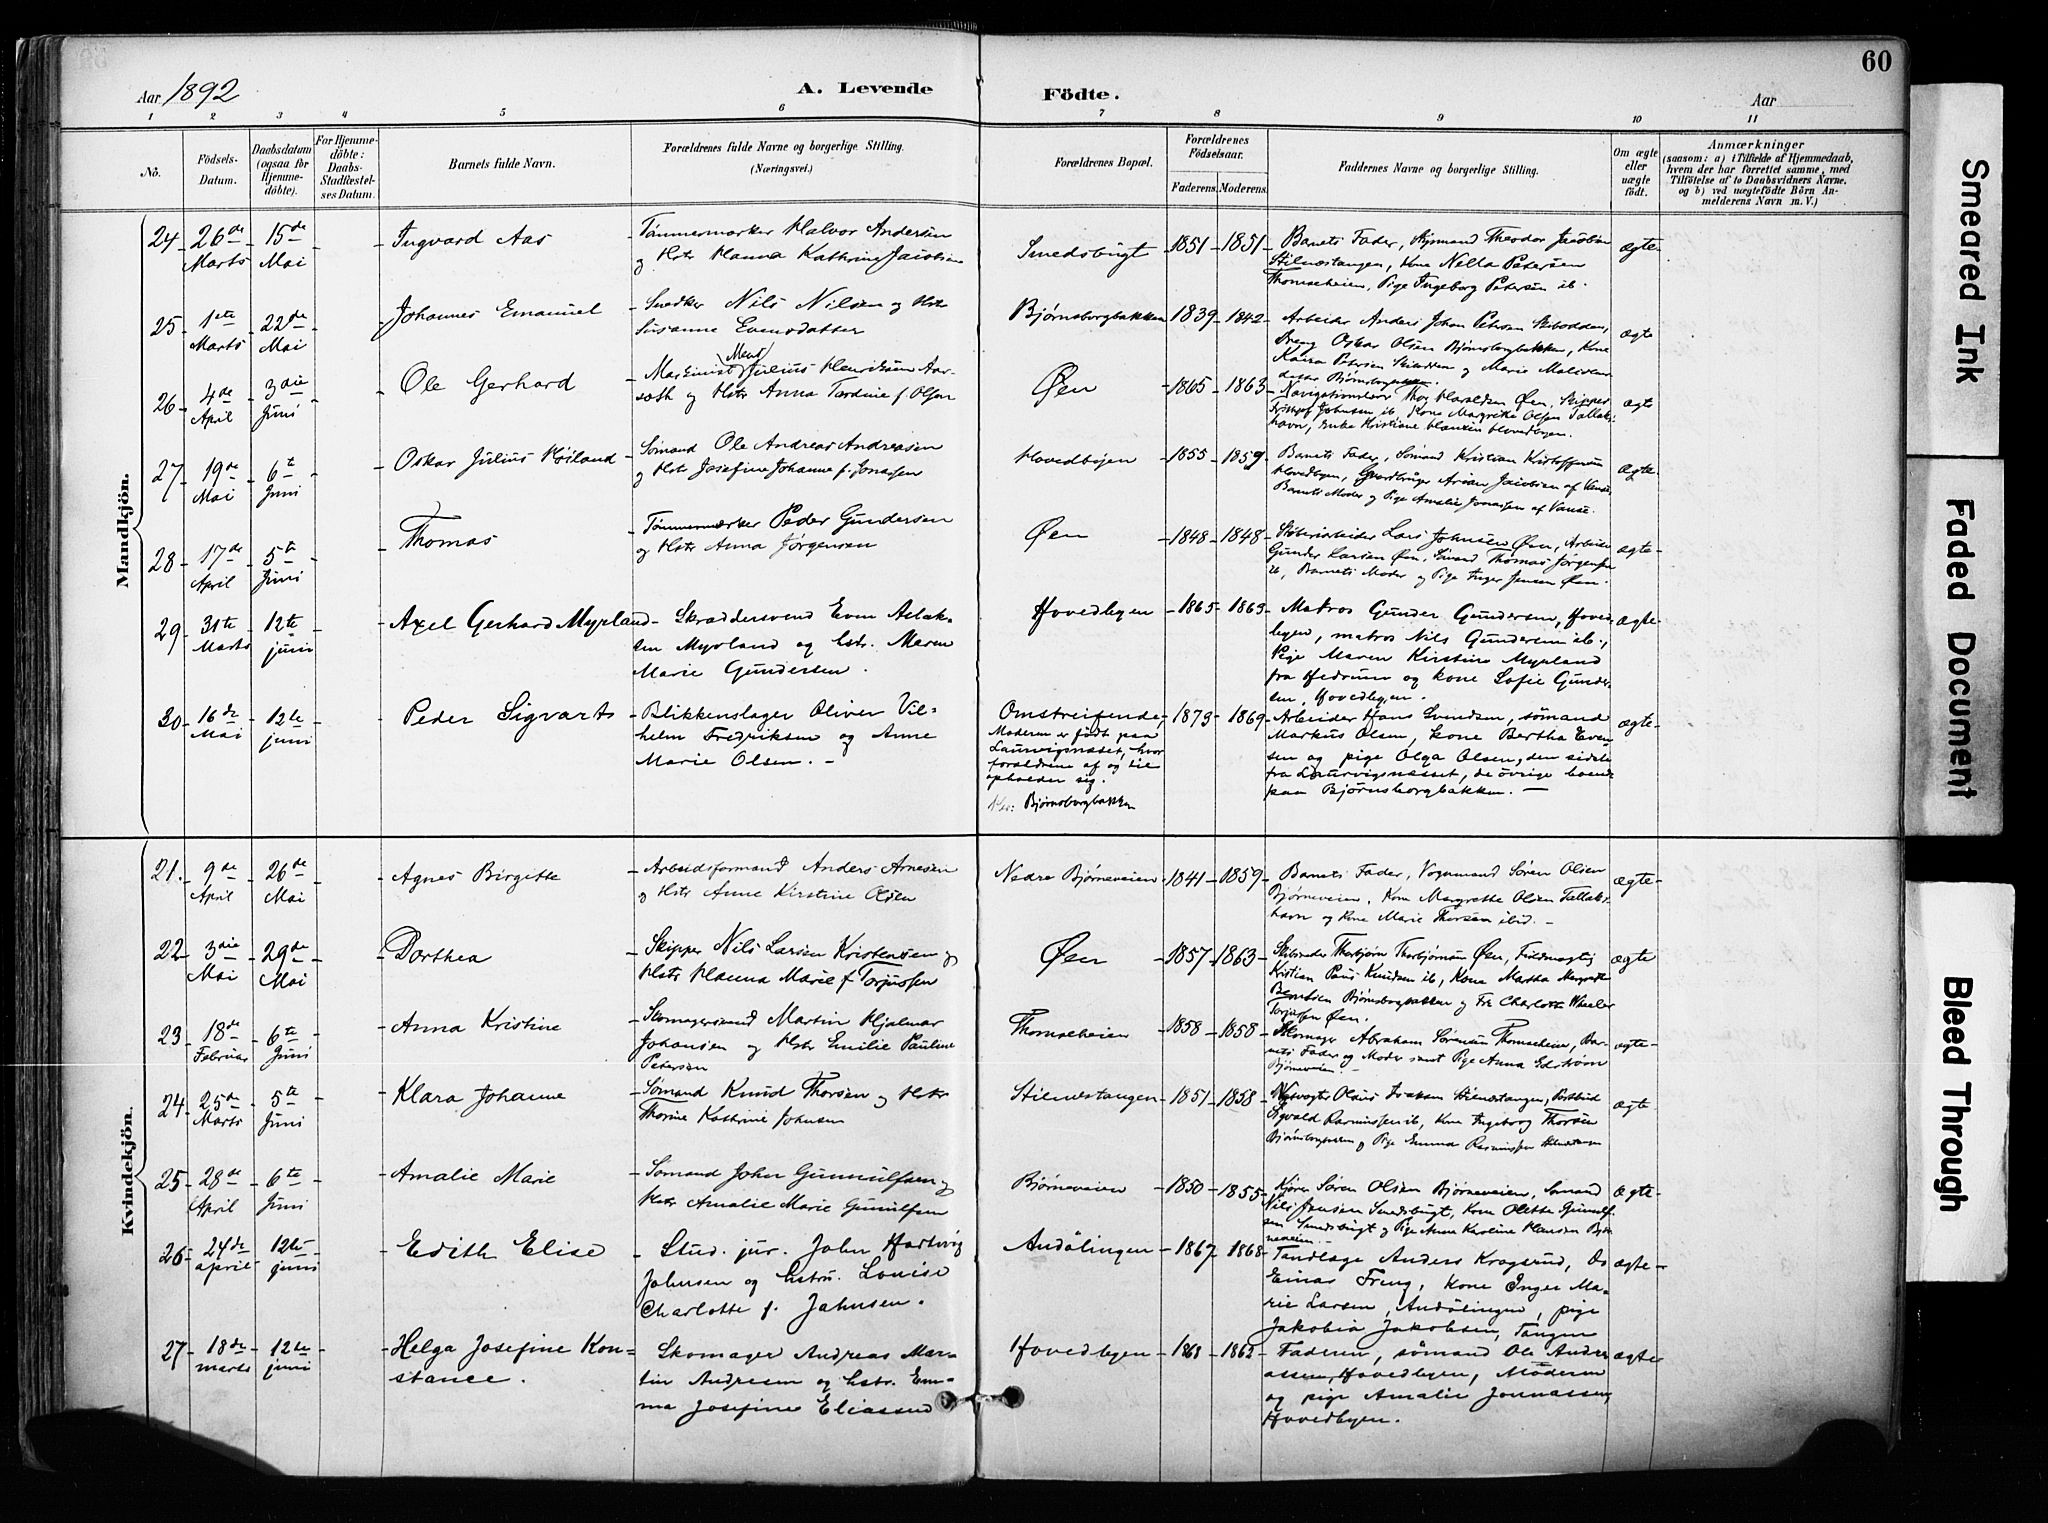 60
Aar 1892
A. Levende
Födte.
Aar
1 2 3 4 5 6 7 8 9 10 11
No.
Födsels-
Datum.
Daabsdatum
(ogsaa for
Hjemme-
döbte).
For Hjemme-
döbte:
Daabs-
Stadfæstel-
ses Datum.
Barnets fulde Navn.
Forældrenes fulde Navne og borgerlige Stilling.
(Næringsvei.)
Forældrenes Bopæl.
Forældrenes
Födselsaar.
Faderens. Moderens.
Faddernes Navne og borgerlige Stilling.
Om ægte
eller
uægte
födt.
Anmærkninger
(saasom: a) i Tilfælde af Hjemmedaab,
hvem der har forrettet samme, med
Tilföielse af to Daabsvidners Navne,
og b) ved uægtefödte Börn An-
melderens Navn m. V.)
Mandkjön.
24 26de Marts 15de Mai
Ingvard Aas
Tømmermærker Halvor Andersen
og Hstr Hanna Kathrine Jacobsen
Smedsbugt
1851 1851
Barnets Fader, Styrmand Theodor Jacobsen
Stilnestangen, Kone Nella Petersen
Thomseheien, Pige Ingeborg Petersen ib.
ægte
25 1ste Marts 22de Mai
Johannes Emanuel
Snedker Nils Nilsen og Hstr
Susanne Evensdatter
Bjørnsborgbakken
1839 1842
Arbeider Anders Johan Petersen
Dreng Oskar Olsen Bjørnsborgbakken, Kone
ægte
26 4de April 3die Juni
Ole Gerhard
Maskinist Julius Henriksen Aar-
seth og Hstr Anna Tardine f. Olsen
Øen
1865 1863
Navigationslærer Thor Haraldsen Øen, Skipper
Johnsen ib, Kone Margrethe Olsen Tallaks-
havn, Enke Kristiane Hovedbyen.
ægte
27 19de Mai 6te Juni
Oskar Julius Høiland
Sømand Ole Andreas Andreasen
og Hstr Josefine Johanne f. Jonassen
Hovedbyen
1855 1859
Barnets Fader, Sømand Kristian Kristoffersen
Hovedbyen, Gaardbruger Jacobsen af Vanse,
Barnets Moder og Pige Amalie Jonassen af Vanse.
ægte
28 17de April 5te Juni
Thomas
Tømmermærker Peder Gundersen
og Hstr Anna Jørgensen
Øen
1848 1848
Lars Johnsen Øen, Arbeider
Gunder Larsen Øen, Sømand Thomas Jørgensen
ib, Barnets Moder og Pige Inger Jensen Øen.
ægte
29 31te Marts 12te juni
Axel Gerhard Myrland
Skræddersvend Even Aslak-
sen Myrland og hstr. Maren
Marie Gundersen.
Hovedbyen
1865 1863
Matros Gunder Gundersen, Hoved-
byen, matros Nils Gundersen ib.,
Pige Maren Kirstine Myrland
fra Hedrum og kone Sofie Gunder-
sen, Hovedbyen.
ægte
30 16de Mai 12te juni
Peder Sigvart
Blikkenslager Oliver Vil-
helm Fredriksen og Anne
Marie Olsen.
Omstreifende,
Moderen er født paa
Laurvigsnæset, hvor
forældrene af og til
opholder sig.
Bjørnsborgbakken
1873 1869
Arbeider Hans Svendsen, sømand
Markus Olsen, kone Bertha Even-
sen og pige Olga Olsen, den sidste
fra Laurvigsnæsset, de øvrige boende
paa Bjørnsborgbakken.
ægte
Kvindekjön.
21. 9de April 26de Mai
Agnes Birgitte
Arbeidsformand Anders Arnesen
og Hstr Anne Kirstine Olsen
Nedre Bjørneveien
1841 1859
Barnets Fader, Vognmand Søren Olsen
Bjørneveien, Kone Margrethe Olsen Tallaks-
havn og Kone Marie Thorsen ibid.
ægte
22 3die Mai 29de Mai
Dorthea
Skipper Nils Larsen Kristensen og
Hstr Hanna Marie f Torjussen
Øen
1857 1863
Skibsreder Thorbjørn Thorbjørnsen Øen, Fuldmægtig
Kristian Paus Knudsen ib, Kone Martha Margrethe
Berntsen Bjørnsborgbakken og Frk Charlotte Wheeler
Torjussen Øen.
ægte
23 18de Februar 6te Juni
Anna Kristine
Skomagersvend Martin Hjalmar
Johansen og Hstr Emilie Pauline
Petersen
Thomseheien
1858 1858
Skomager Abraham Sørensen Thomseheien, Bar-
nets Fader og Moder samt Pige Anna Edstrøm
Bjørneveien.
ægte
24 25de Marts 5te Juni
Klara Johanne
Sømand Knud Thorsen og Hstr
Thorine Kathrine Johnsen
Stilnestangen
1851 1858
Olaus Isaksen Stilnestangen, Postbud
Sigvald Rasmussen ib, Kone Ingeborg Thorsen
Bjørnsborgbakken og Pige Emma Rasmussen
ægte
25 28de April 6te Juni
Amalie Marie
Sømand John Gunnulfsen og
Hstr Amalie Marie Gunulfsen
Bjørneveien
1850 1855
Kjører Søren Olsen Bjørneveien, Sømand
Nils Jensen Smedsbugt, Kone Olette Gunulf-
sen Smedsbugt og Pige Anne Karoline Hansen Bjør-
neveien.
ægte
26 24de april 12te juni
Edith Elise
Stud. jur. John Hartvig
Johnsen og hstru. Louise
Charlotte f. Jahnsen.
Andølingen
1867 1868
Tandlæge Anders Krogsrud, Do
Einar Freng, kone Inger Ma-
rie Larsen, Andølingen, pige
Jakobia Jakobsen, Tangen
ægte
27 18de marts 12te juni
Helga Josefine Kon-
stance.
Skomager Andreas Mar-
tin Andresen og hstr. Em-
ma Josefine Eliassen
Hovedbyen
1863 1862
Faderen, sømand Ole Andre-
assen, Hovedbyen, Moderen
og pige Amalie Jonnassen,
Hovedbyen.
ægte
Smeared Ink
Faded Document
Bleed Through